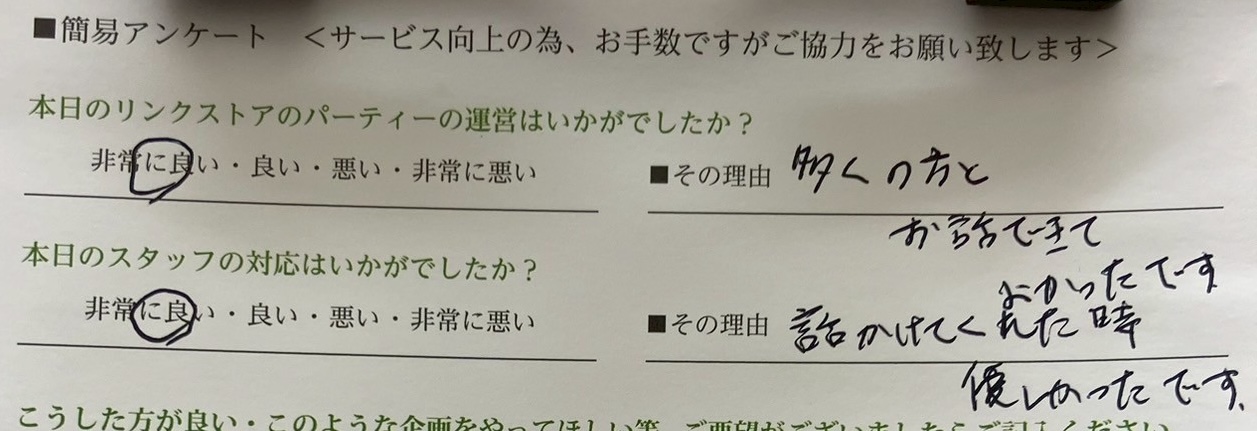 ■簡易アンケート <サービス向上の為、お手数ですがご協力をお願い致します>
本日のリンクストアのパーティーの運営はいかがでしたか？
非常に良い・良い・悪い・非常に悪い
■その理由 多くの方と
お話できて
よかったです
本日のスタッフの対応はいかがでしたか？
非常に良い・良い・悪い・非常に悪い
■その理由 話かけてくれた時
優しかったです.
こうした方が良い・このような企画をやってほしい等、ご要望がございましたらご記入ください